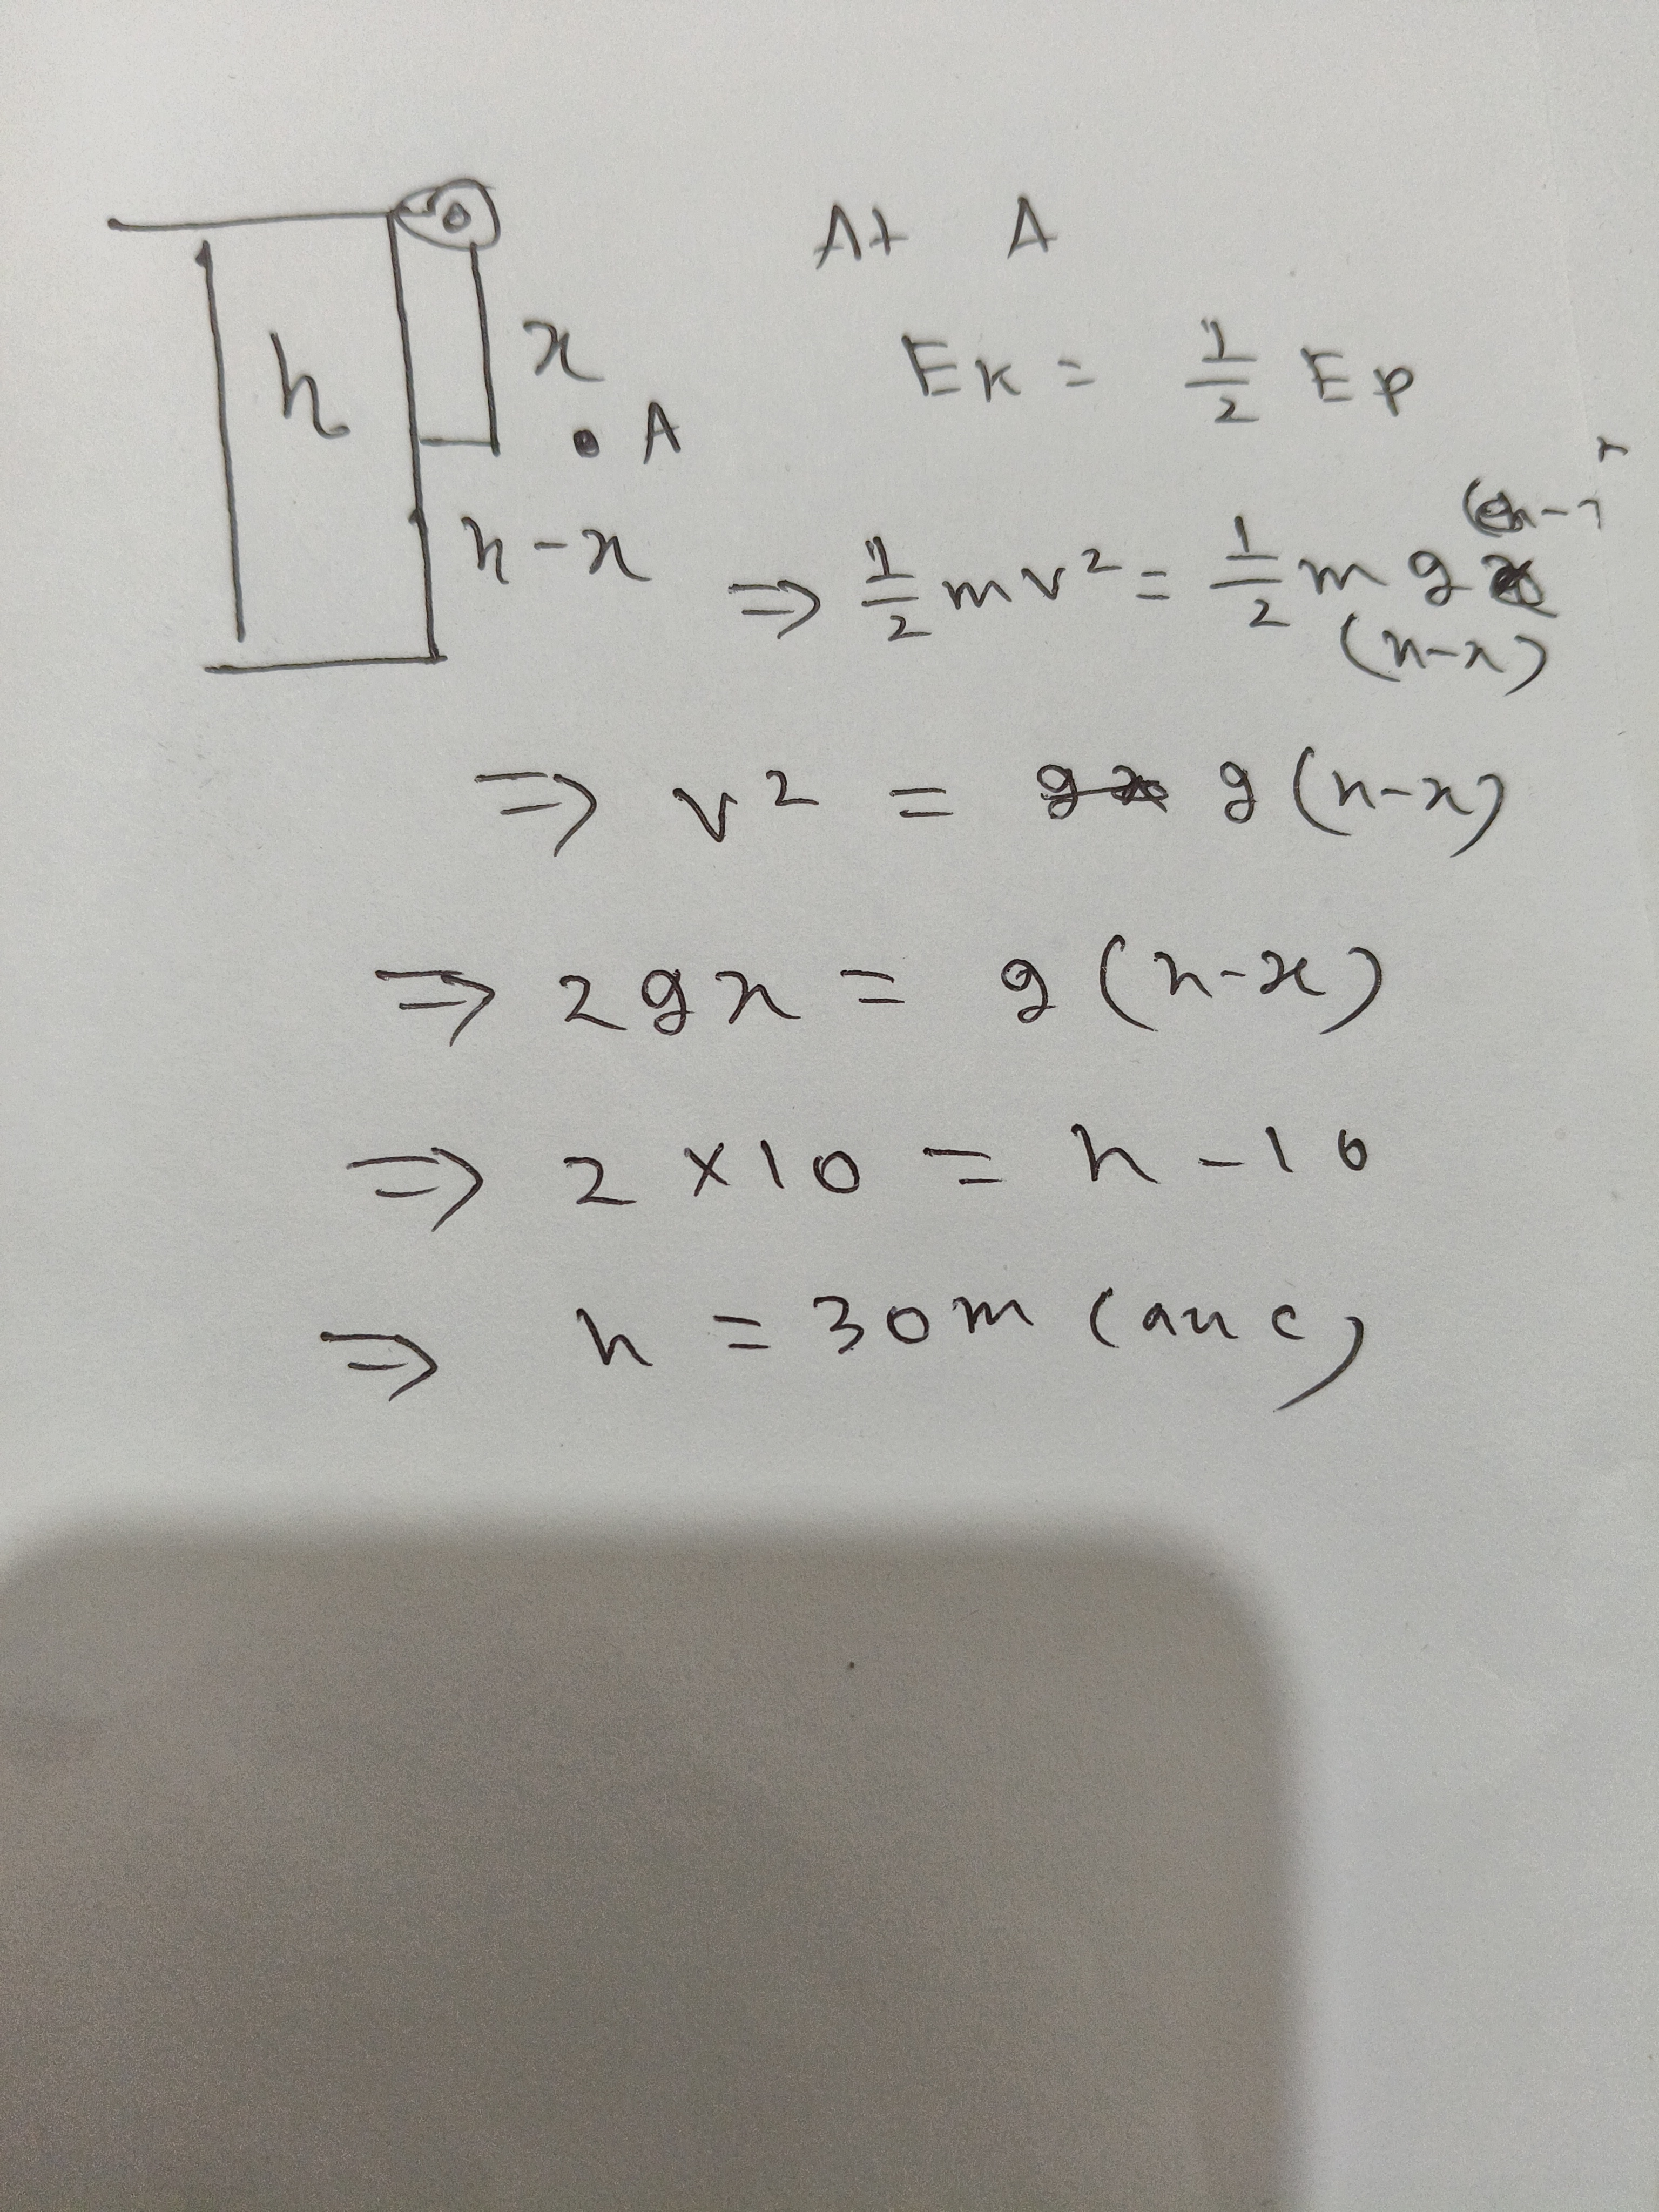 At A
h
x
Ek = 1/2 Ep
• A
h-x
⇒ 1/2 mv² = 1/2 mg
(h-x)
⇒ v² = g(h-x)
⇒ 2gx = g(h-x)
⇒ 2×10 = h-10
⇒ h = 30m (ans)